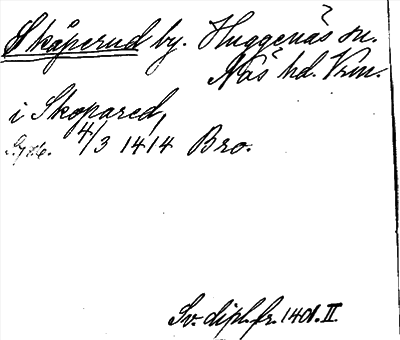 Skåperud by. Huggenäs sn.
Näs hd. Vrm.
i Skopared,
4/3 1414 Bro.
Sv. dipl. fr. 1401. II